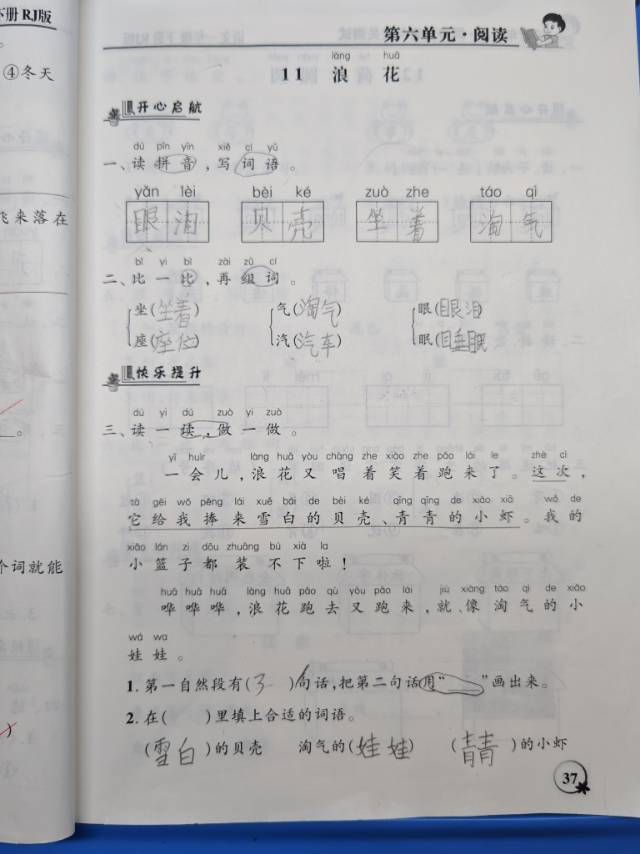 下册 RJ版
④冬天
飞来落在
个词就能
第六单元·阅读
làng huā
11 浪花
开心启航
dú pīn yīn xiě cí yǔ
一、读拼音,写词语。
yǎn lèi bèi ké zuò zhe táo qì
眼泪 贝壳 坐着 淘气
bǐ yi bǐ zài zǔ cí
二、比一比,再组词。
坐(坐着) 气(淘气) 眼(眼泪)
座(座位) 汽(汽车) 眠(睡眠)
快乐提升
dú yi dú zuò yi zuò
三、读一读,做一做。
yí huìr làng huā yòu chàng zhe xiào zhe pǎo lái le zhè cì
一会儿,浪花又唱着笑着跑来了。这次,
tā gěi wǒ pěng lái xuě bái de bèi ké qīng qīng de xiǎo xiā wǒ de
它给我捧来雪白的贝壳、青青的小虾。我的
xiǎo lán zi dōu zhuāng bú xià la
小篮子都装不下啦!
huā huā huā làng huā pǎo qù yòu pǎo lái jiù xiàng táo qì de xiǎo
哗哗哗,浪花跑去又跑来,就像淘气的小
wá wa
娃娃。
1. 第一自然段有(3)句话,把第二句话用“ ”画出来。
2. 在( )里填上合适的词语。
(雪白)的贝壳 淘气的(娃娃) (青青)的小虾
37